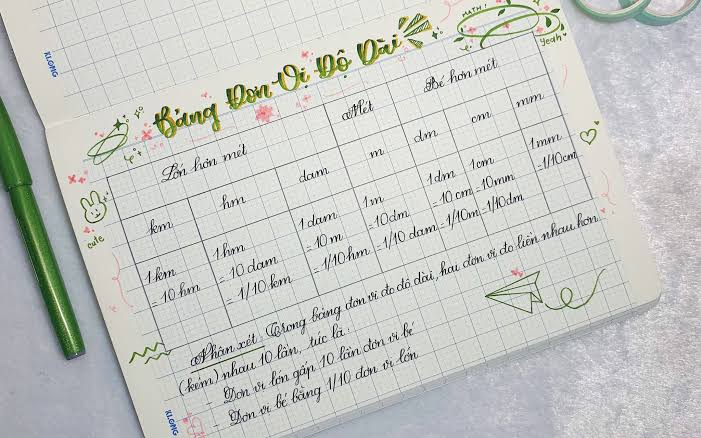 KLONG
MATH!
Yeah
Bảng Đơn Vị Độ Dài
Lớn hơn mét Mét Bé hơn mét
km hm dam m dm cm mm
1km 1hm 1dam 1m 1dm 1cm 1mm
= 10 hm = 10 dam = 10 m = 10dm = 10 cm = 10mm = 1/10cm
= 1/10 km = 1/10 hm = 1/10 dam = 1/10m = 1/10dm
cute
Nhận xét: Trong bảng đơn vị đo độ dài, hai đơn vị đo liền nhau hơn
(kém) nhau 10 lần, tức là:
- Đơn vị lớn gấp 10 lần đơn vị bé
- Đơn vị bé bằng 1/10 đơn vị lớn
KLONG